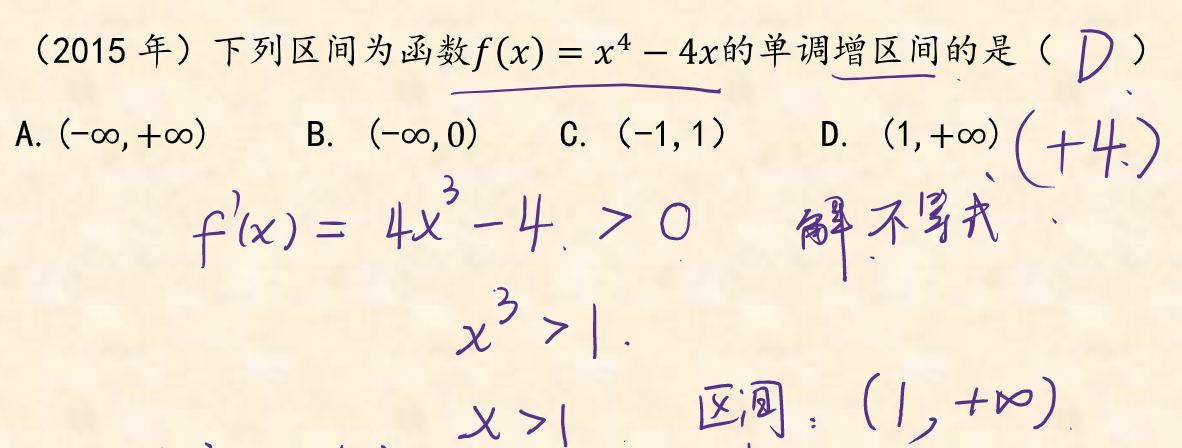 （2015 年）下列区间为函数f(x) = x⁴ − 4x的单调增区间的是（ D ）
A. (−∞, +∞) B. (−∞, 0) C. (−1, 1) D. (1, +∞) (+4.)
f'(x) = 4x³ − 4 > 0 解不等式
x³ > 1.
x > 1 区间：(1, +∞)